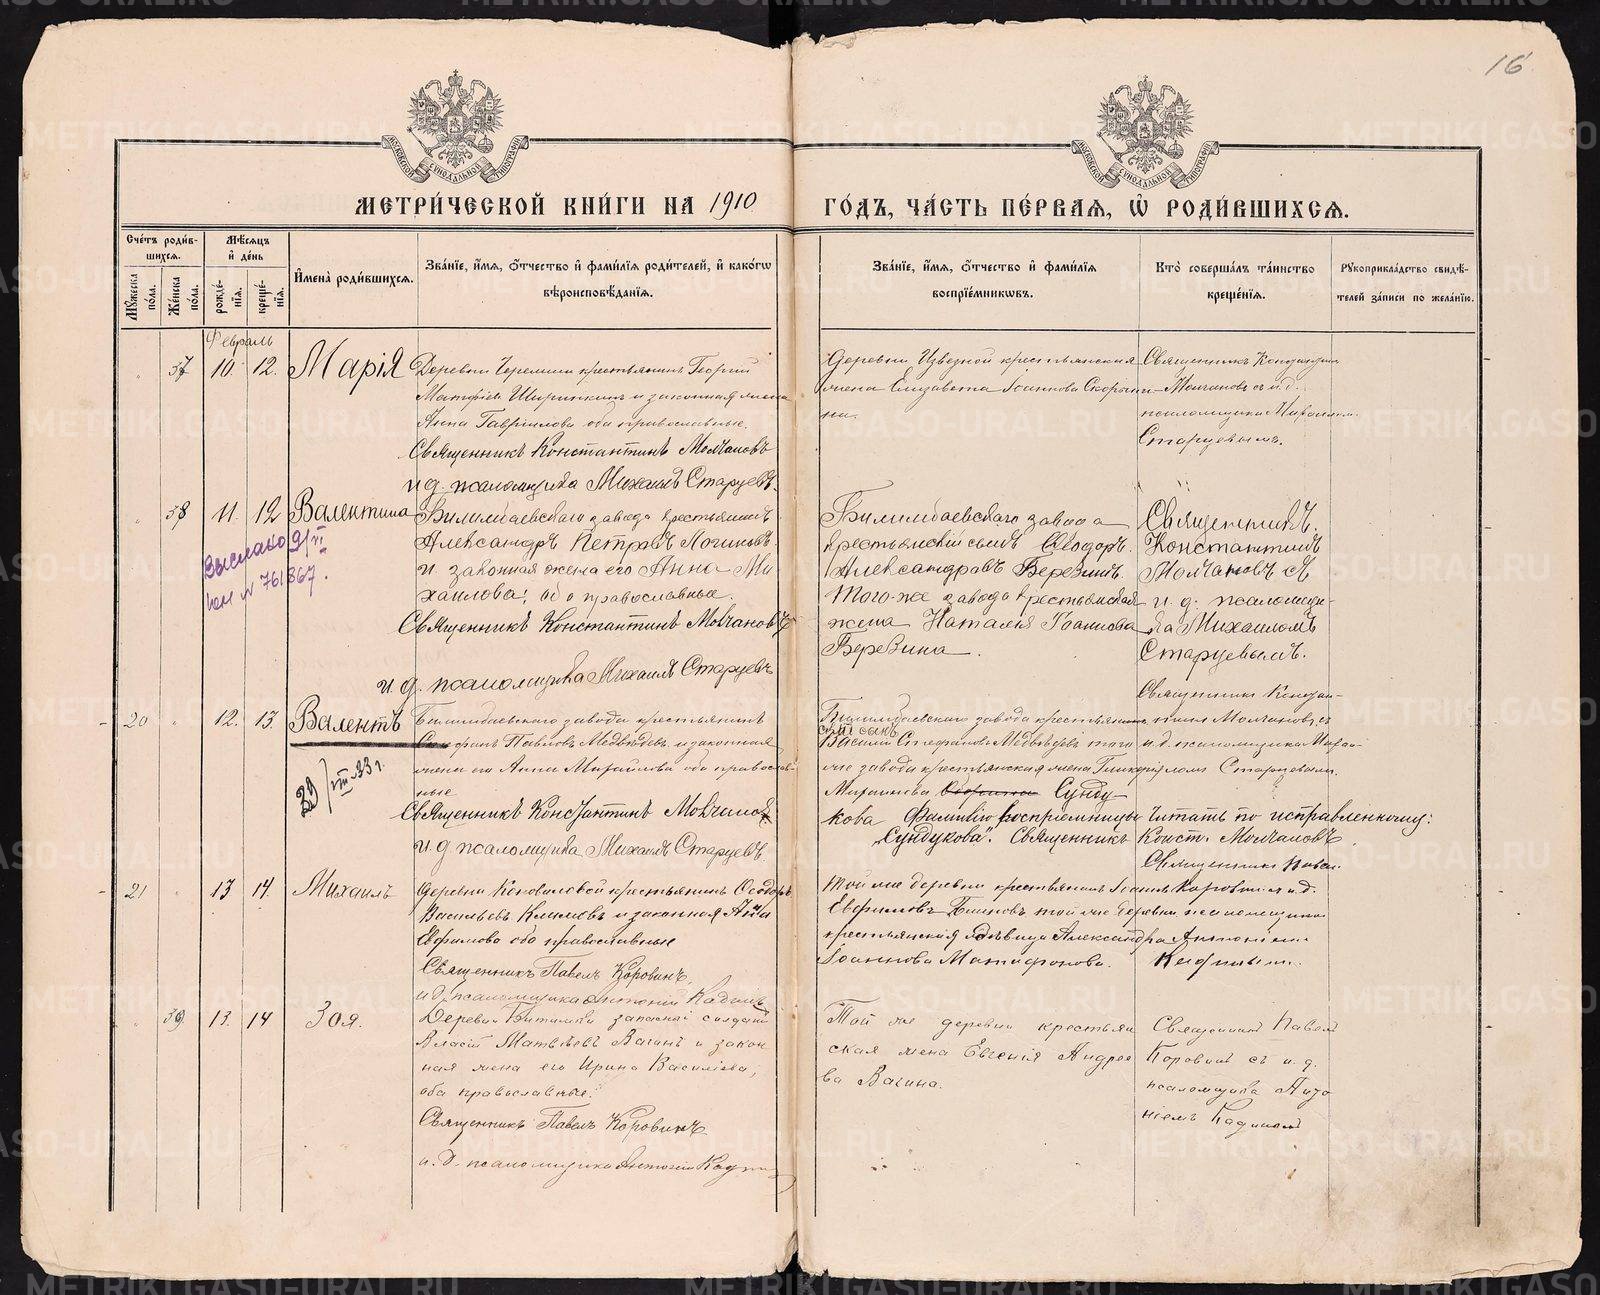 16
МОСКОВСКОЙ СѴНОДАЛЬНОЙ ТИПОГРАФІИ
МОСКОВСКОЙ СѴНОДАЛЬНОЙ ТИПОГРАФІИ
МЕТРИ́ЧЕСКОЙ КНИ́ГИ НА 1910 ГО́ДЪ, ЧА́СТЬ ПЕ́РВАѦ, Ѡ РОДИ́ВШИХСѦ.
Сче́тъ роди́в-
шихсѧ.
Мꙋ́жеска по́ла.
Же́нска по́ла.
Мѣ́сѧцъ
и҆ де́нь
рожде́-
нїѧ.
креще́-
нїѧ.
И҆мена̀ роди́вшихсѧ.
Зва́нїе, и҆́мѧ, ѻ҆́тчество и҆ фами́лїѧ роди́телей, и҆ како́гѡ
вѣроисповѣ́данїѧ.
Зва́нїе, и҆́мѧ, ѻ҆́тчество и҆ фами́лїѧ
воспрїе́мникѡвъ.
Кто̀ соверша́лъ та́инство
креще́нїѧ.
Рꙋкоприкла́дство свидѣ́-
телей за́писи по жела́нїю.
Февраль
37 10 12. Марія
Деревни крестьянинъ Георгій
Ширинкинъ и законная жена
Анна Гавриилова оба православные.
Священникъ Константинъ Молчановъ
и д. псаломщика Михаилъ Старцевъ.
Деревни Извезной крестьянская
жена Елизавета Іоаннова Скоры-
на.
Священникъ
Молчановъ съ и. д.
псаломщика Михаиломъ
Старцевымъ.
38 11. 12 Валентина
Выслано 9/VI
№ 761867.
Билимбаевскаго завода крестьянинъ
Александръ Петровъ Логиновъ
и законная жена его Анна Ми-
хаилова, оба православные.
Священникъ Константинъ Молчановъ
и. д. псаломщика Михаилъ Старцевъ
Билимбаевскаго завода
крестьянскій сынъ Ѳеодоръ
Александровъ Березинъ
того-же завода крестьянская
жена Наталія Іоаннова
Березина.
Священникъ
Константинъ
Молчановъ съ
и. д. псаломщи-
ка Михаиломъ
Старцевымъ.
20 12. 13. Валентъ
39/VIII 33 г.
Билимбаевскаго завода крестьянинъ
Стефанъ Павловъ Медвѣдевъ и законная
жена его Анна Михайлова оба православ-
ные
Священникъ Константинъ Молчановъ
и. д. псаломщика Михаилъ Старцевъ
Билимбаевскаго завода крестьянинъ
сынъ
Василій Стефановъ Медвѣдевъ того
же завода крестьянская жена
Сунду-
кова Фамилію воспріемницы читать по исправленному:
„Сундукова". Священникъ Конст. Молчановъ
Священникъ Констан-
тинъ Молчановъ съ
и. д. псаломщика Михаи-
ломъ Старцевымъ.
21 13 14. Михаилъ
Деревни Коноваловой крестьянинъ Ѳеодоръ
Васильевъ Климовъ и законная Анна
Евфимова оба православные
Священникъ Павелъ Коровинъ,
и д. псаломщика Антоній
Той же деревни крестьянинъ Іоаннъ
Евфимовъ той же деревни
крестьянская дѣвица Александра
Іоаннова
Священникъ Павелъ
Коровинъ и. д.
псаломщика
Антоніемъ
39. 13. 14 Зоя.
Деревни Битимки запасный солдатъ
Власій Матвѣевъ Вагинъ и закон-
ная жена его Ирина Василіева,
оба православные.
Священникъ Павелъ Коровинъ
и. д. псаломщика Антоній
Той же деревни крестьян-
ская жена Евгенія Андрее-
ва Вагина.
Священникъ Павелъ
Коровинъ съ и. д.
псаломщика Анто-
ніемъ